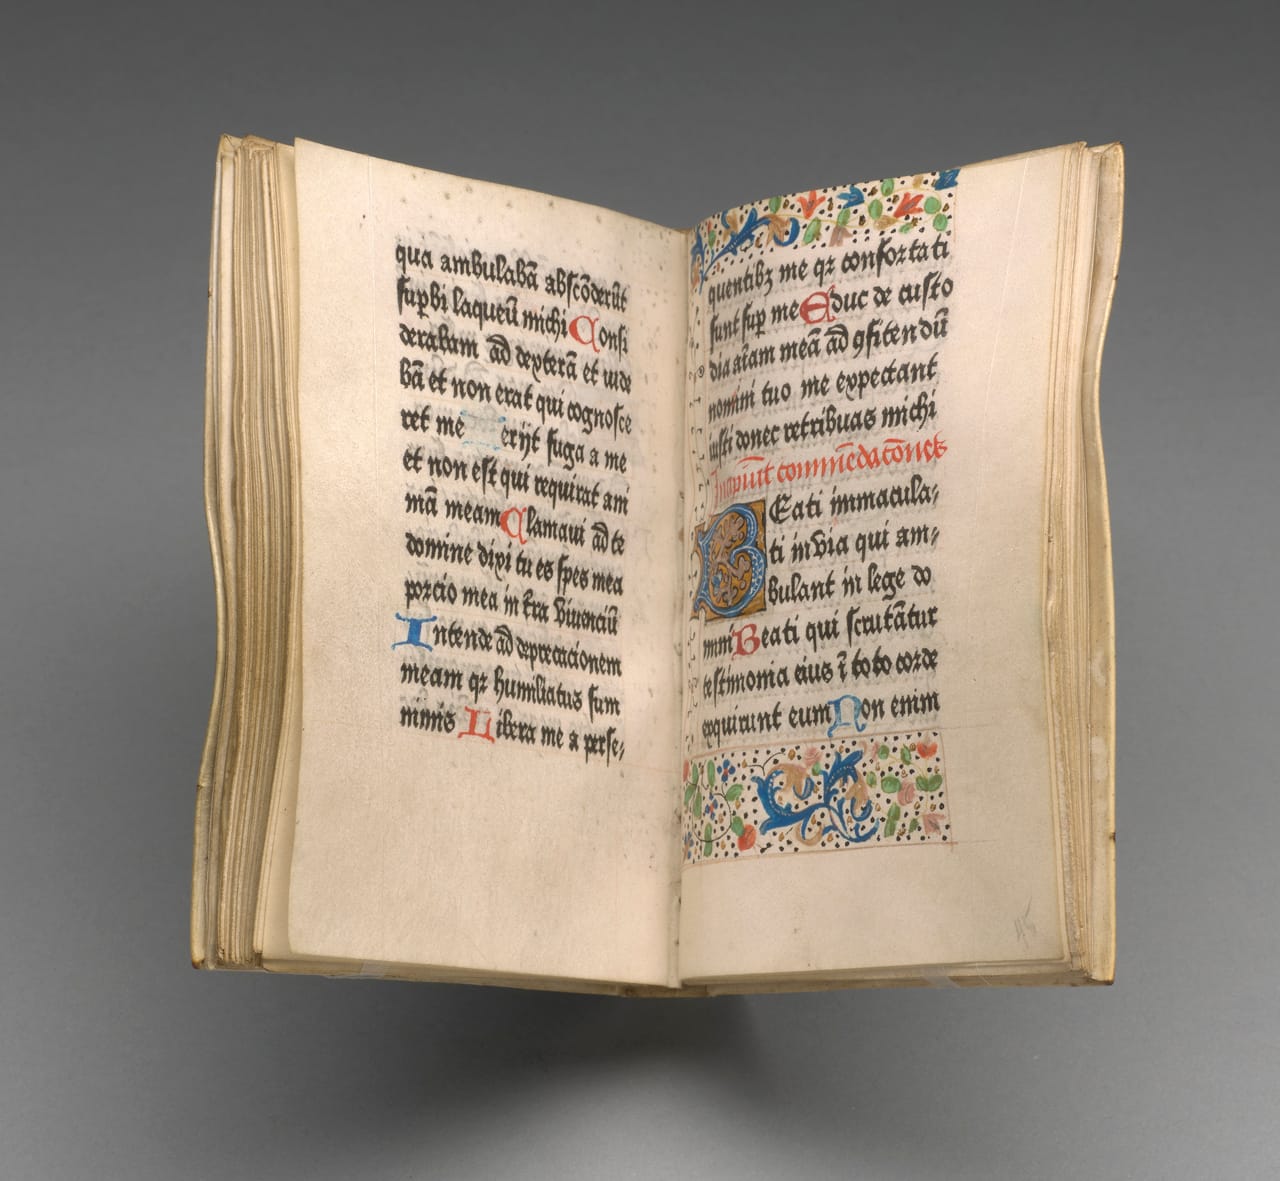 qua ambulabā abscōderūt
supbi laqueū michi Consi
derabam ad dexterā et uide
bā et non erat qui cognosce
ret me erijt fuga a me
et non est qui requirat ani
mā meam Clamaui ad te
domine dixi tu es spes mea
porcio mea in tra viuenciū
Intende ad deprecacionem
meam qz humiliatus sum
nimis Libera me a perse-
quentibz me qz confortati
sunt sup me Educ de custo
dia aīam meā ad 9fitendū
nomini tuo me expectant
iusti donec retribuas michi
Incipiūt commēdacōnes
BEati immacula-
ti in via qui am-
bulant in lege do
mini Beati qui scrutātur
testimonia eius ī toto corde
exquirunt eum Non enim
45